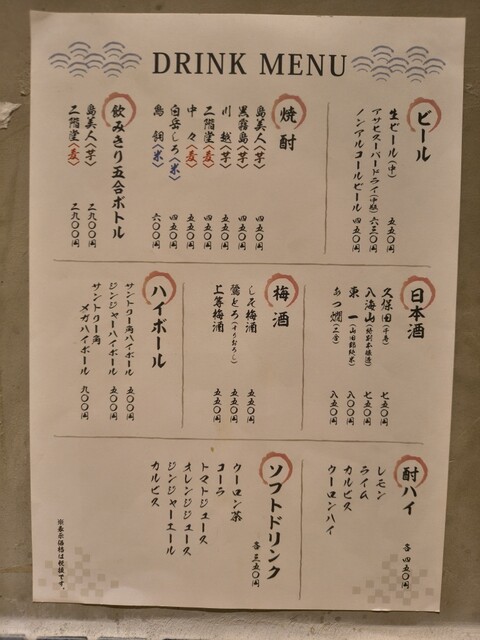 DRINK MENU
ビール
生ビール(中) 五五〇円
アサヒスーパードライ(中瓶) 六三〇円
ノンアルコールビール 四五〇円
焼酎
島美人〈芋〉 四五〇円
黒霧島〈芋〉 四五〇円
川越〈芋〉 五五〇円
二階堂〈麦〉 四五〇円
中々〈麦〉 五五〇円
白岳しろ〈米〉 四五〇円
鳥飼〈米〉 六〇〇円
飲みきり五合ボトル
島美人〈芋〉 二九〇〇円
二階堂〈麦〉 二九〇〇円
日本酒
久保田(千寿) 七五〇円
八海山(特別本醸造) 七五〇円
東一(山田錦純米) 八〇〇円
あつ燗(二合) 八五〇円
梅酒
しそ梅酒 五五〇円
鶯とろ(すりおろし) 五五〇円
上等梅酒 五五〇円
ハイボール
サントリー角ハイボール 五〇〇円
ジンジャーハイボール 五〇〇円
サントリー角
メガハイボール 九〇〇円
酎ハイ
各 四五〇円
レモン
ライム
カルピス
ウーロンハイ
ソフトドリンク
各 三五〇円
ウーロン茶
コーラ
トマトジュース
オレンジジュース
ジンジャーエール
カルピス
※表示価格は税抜です。